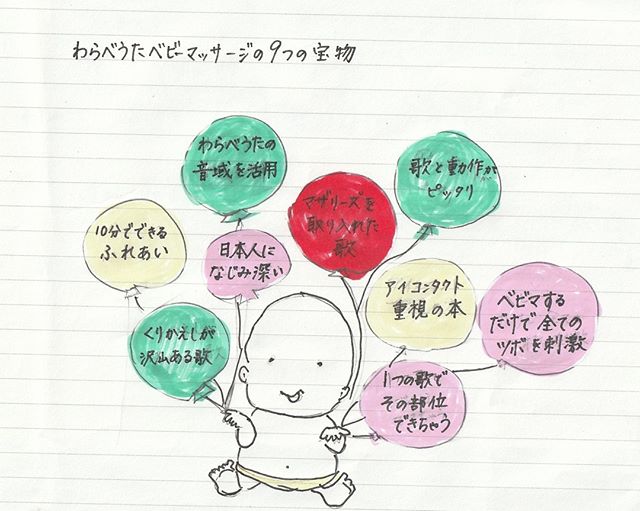 わらべうたベビーマッサージの9つの宝物
わらべうたの
音域を活用
歌と動作が
ピッタリ
マザリーズを
取り入れた
歌
10分でできる
ふれあい
日本人に
なじみ深い
アイコンタクト
重視の本
ベビマする
だけで全ての
ツボを刺激
くりかえしが
沢山ある歌
1つの歌で
その部位
できちゃう